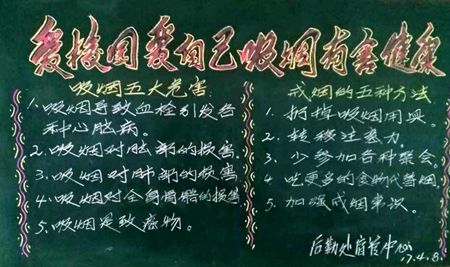 爱校园爱自己吸烟有害健康
吸烟五大危害:
1、吸烟导致血栓引发各
种心脏病。
2、吸烟对脑部的损害.
3、吸烟对肺部的损害.
4、吸烟对全身骨骼的损害
5、吸烟是致癌物。
戒烟的五种方法
1. 扔掉吸烟用具.
2. 转移注意力.
3. 少参加各种聚会.
4. 吃更多的食物代替烟.
5. 加强戒烟意识.
后勤处宿管中心
17.4.8.